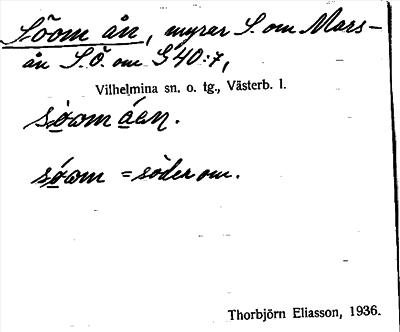 Söom ån, myrar S. om Mars-
ån S.Ö. om G40:7,
Vilhelmina sn. o. tg., Västerb. l.
sǿom áen.
sǿom = söder om.
Thorbjörn Eliasson, 1936.